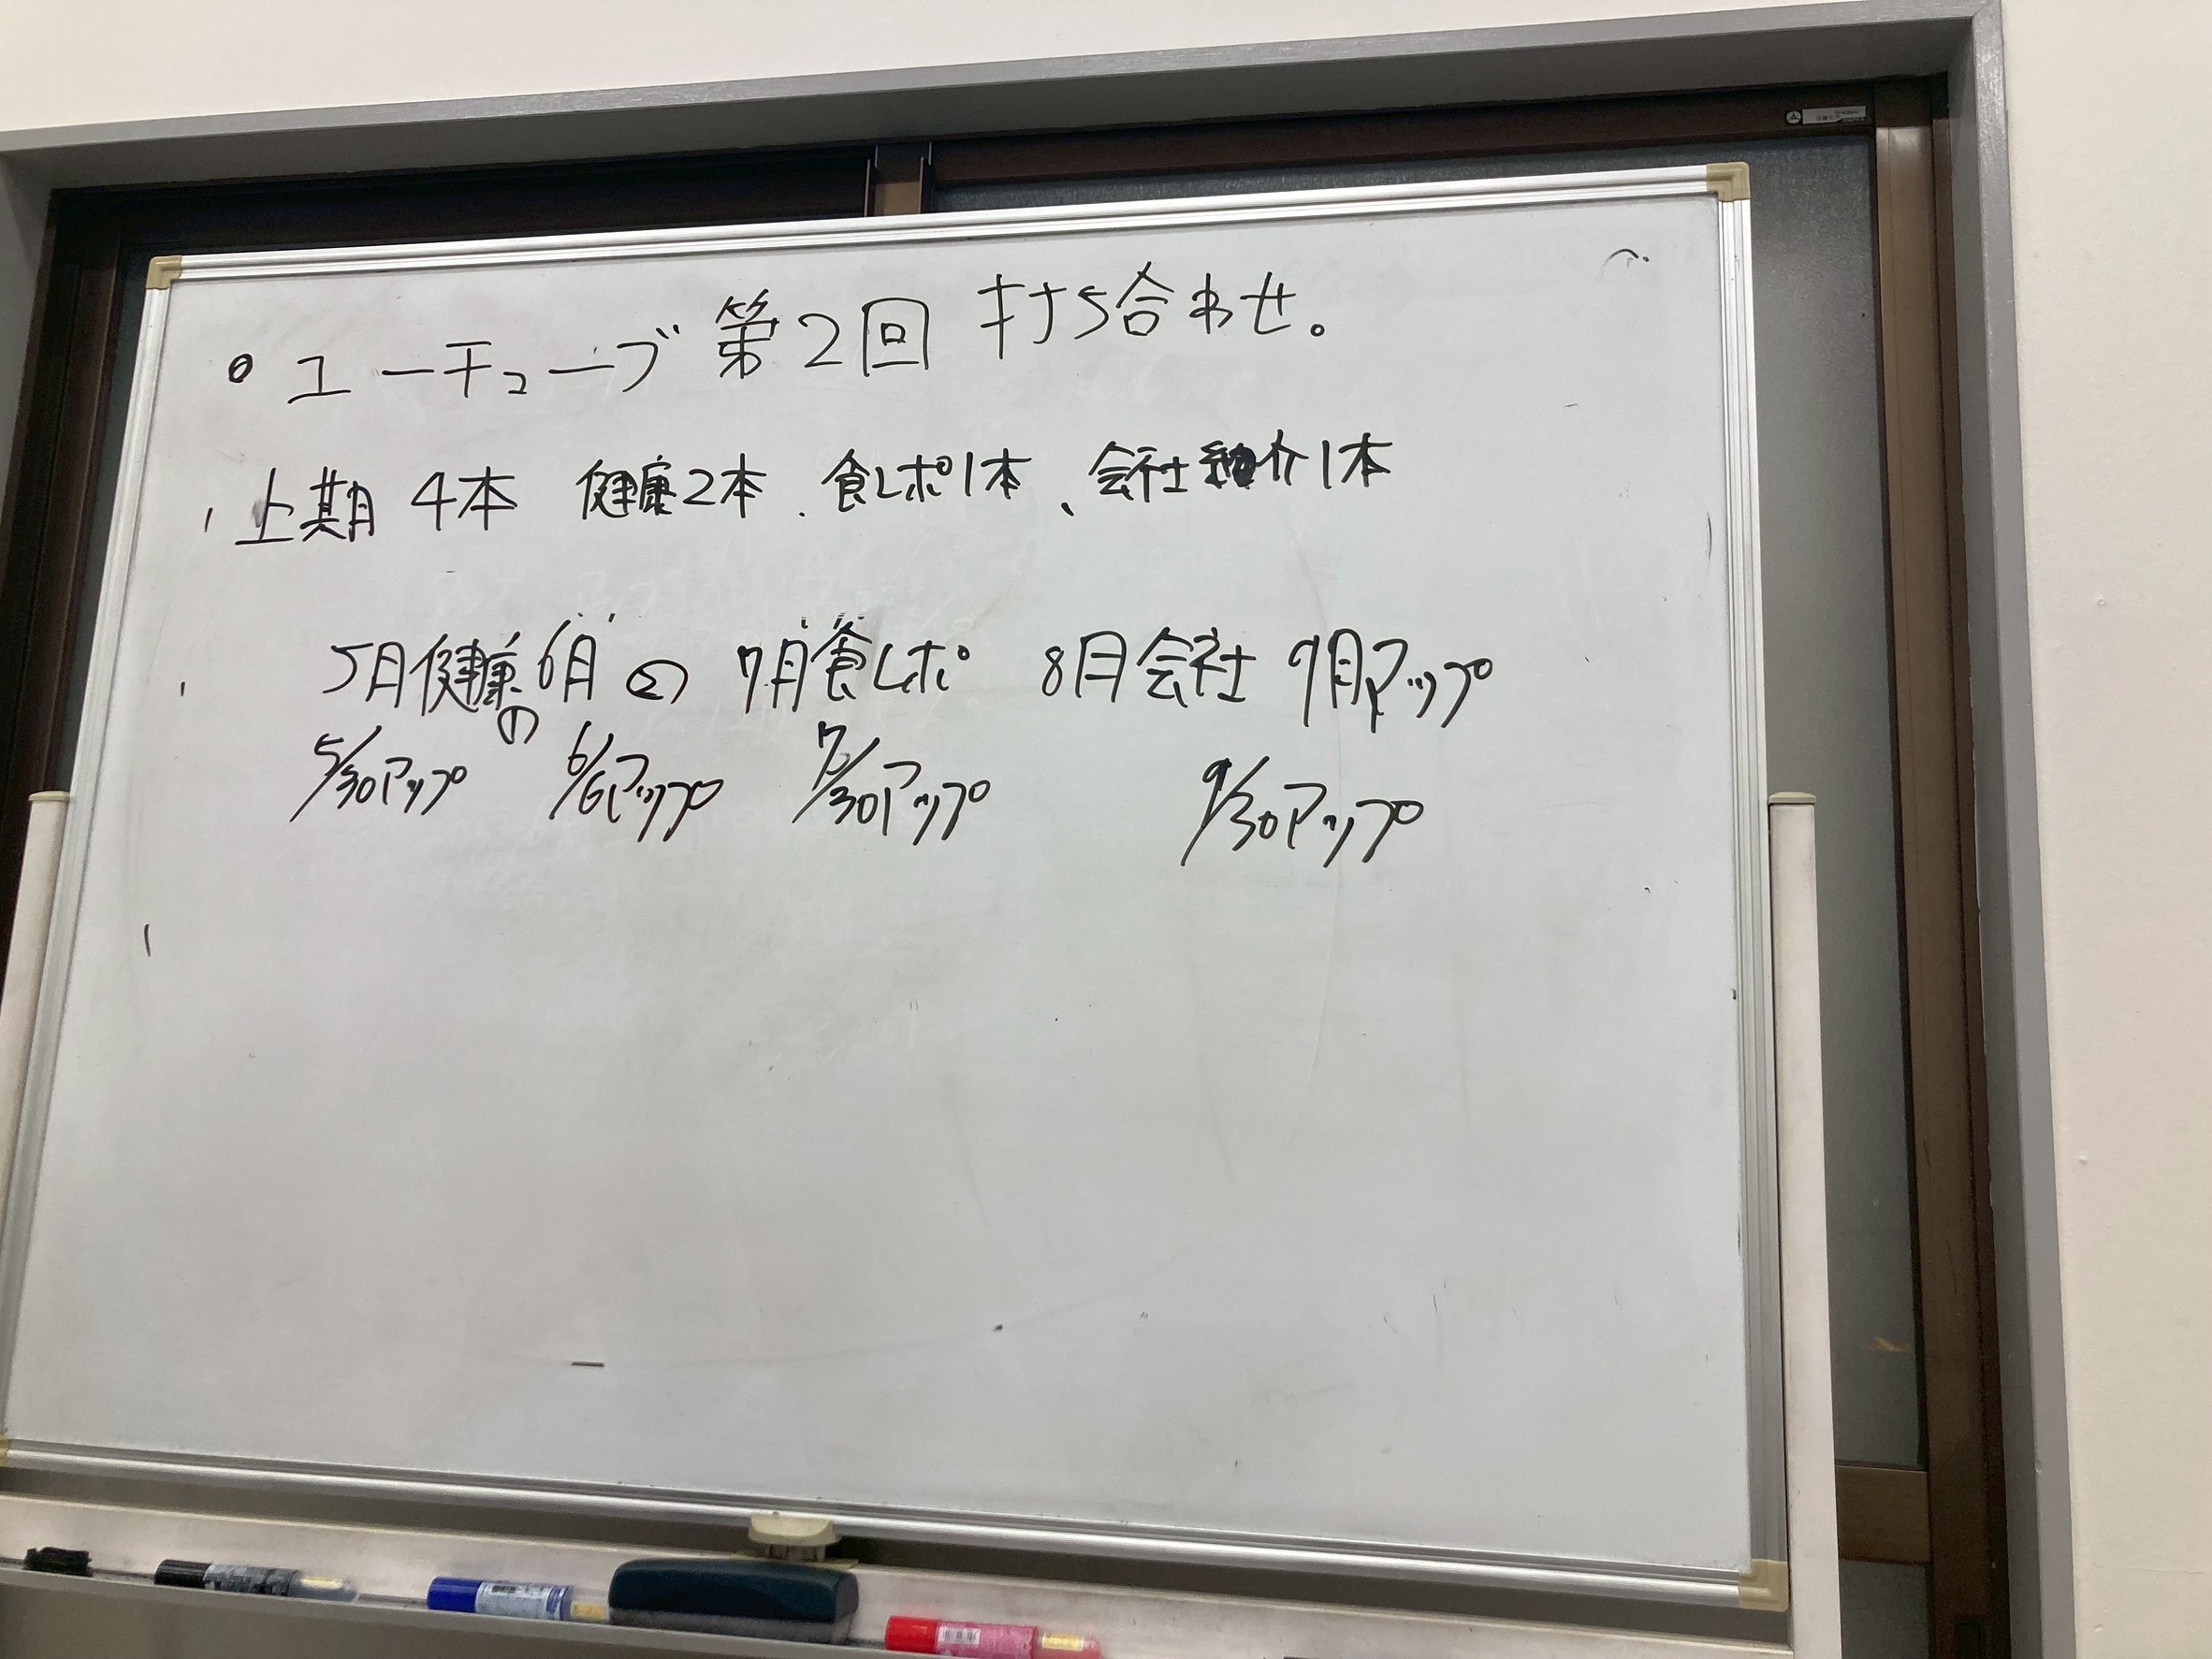 • ユーチューブ 第2回 打ち合わせ。
上期 4本 健康2本、食レポ1本、会社紹介1本
5月健康① 6月② 7月食レポ 8月会社 9月アップ
5/30アップ 6/ アップ 7/30アップ 9/30アップ